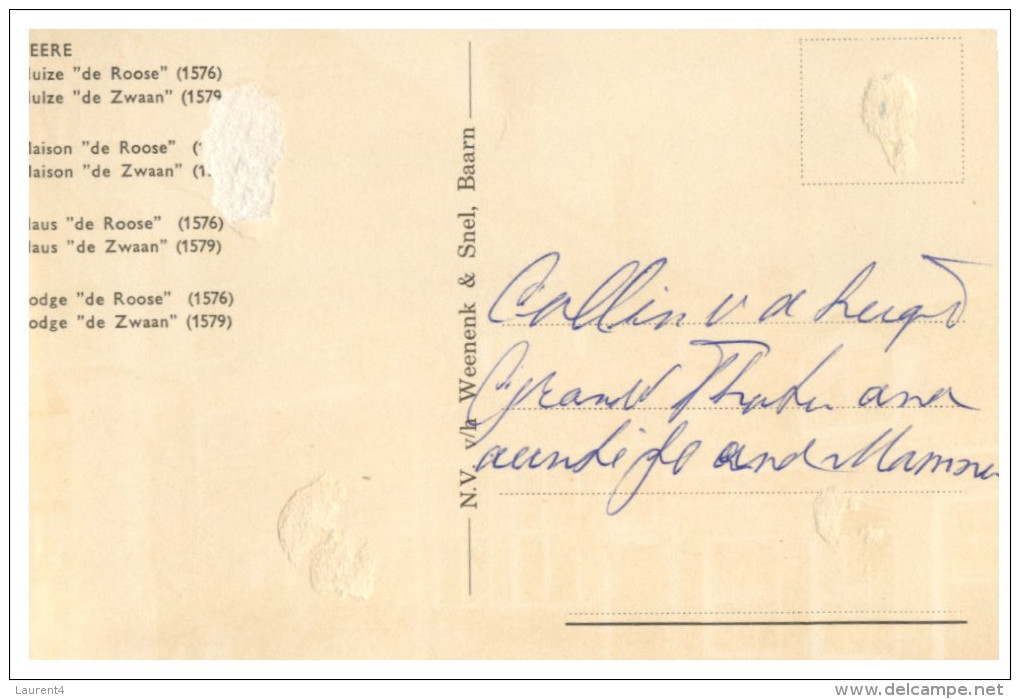 EERE
uize "de Roose" (1576)
uize "de Zwaan" (1579
aison "de Roose" (
aison "de Zwaan" (1
aus "de Roose" (1576)
aus "de Zwaan" (1579)
odge "de Roose" (1576)
odge "de Zwaan" (1579)
N.V. v/h Weenenk & Snel, Baarn
Collin v d
Grand and
and Mamma
Laurent4
www.delcampe.net